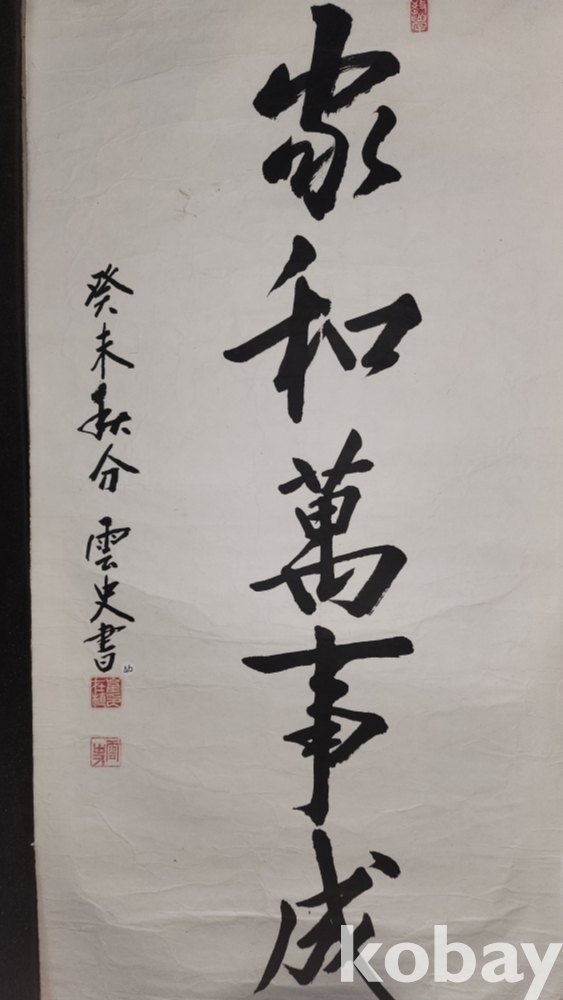 家和萬事成
癸未秋分 雲史書
雲史
kobay